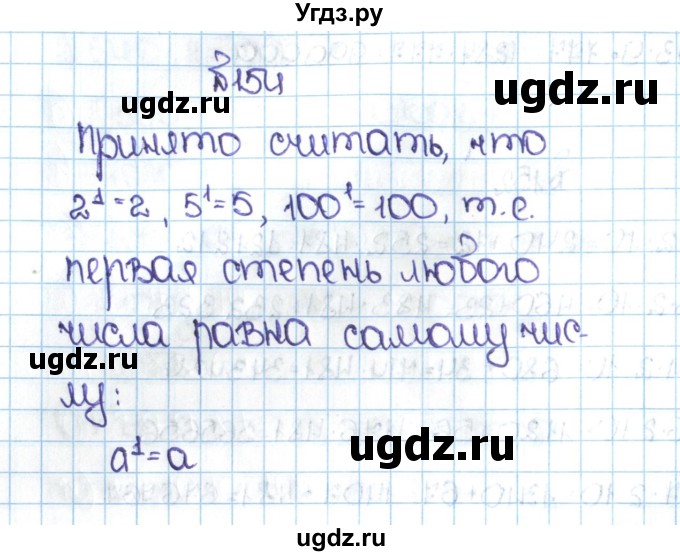 Угдз.ру
№154
ugdz.ru
ugdz.ru
Принято считать, что
2¹=2, 5¹=5, 100¹=100, т.е.
первая степень любого
числа равна самому чис-
ugdz.ru
ugdz.ru
лу:
a¹=a
ugdz.ru
ugdz.ru